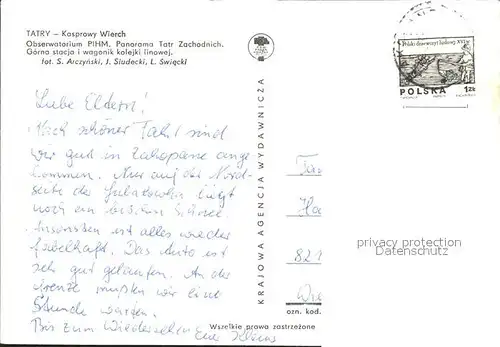 TATRY – Kasprowy Wierch
Obserwatorium PIHM. Panorama Tatr Zachodnich.
Górna stacja i wagonik kolejki linowej.
fot. S. Arczyński, J. Siudecki, L. Święcki
Polski drzeworyt ludowy XVI w.
POLSKA 1 ZŁ
Liebe Eltern!
Nach schöner Fahrt sind
wir gut in Zakopane ange
kommen. Nur auf der Nord-
seite der Gubalowka liegt
noch ein bißchen Schnee.
Ansonsten ist alles wieder
fabelhaft. Das Auto ist
sehr gut gelaufen. An der
Grenze mußten wir eine
Stunde warten.
Bis zum Wiedersehen Eure
KRAJOWA AGENCJA WYDAWNICZA
821
privacy protection
Datenschutz
ozn. kod.
Wszelkie prawa zastrzeżone